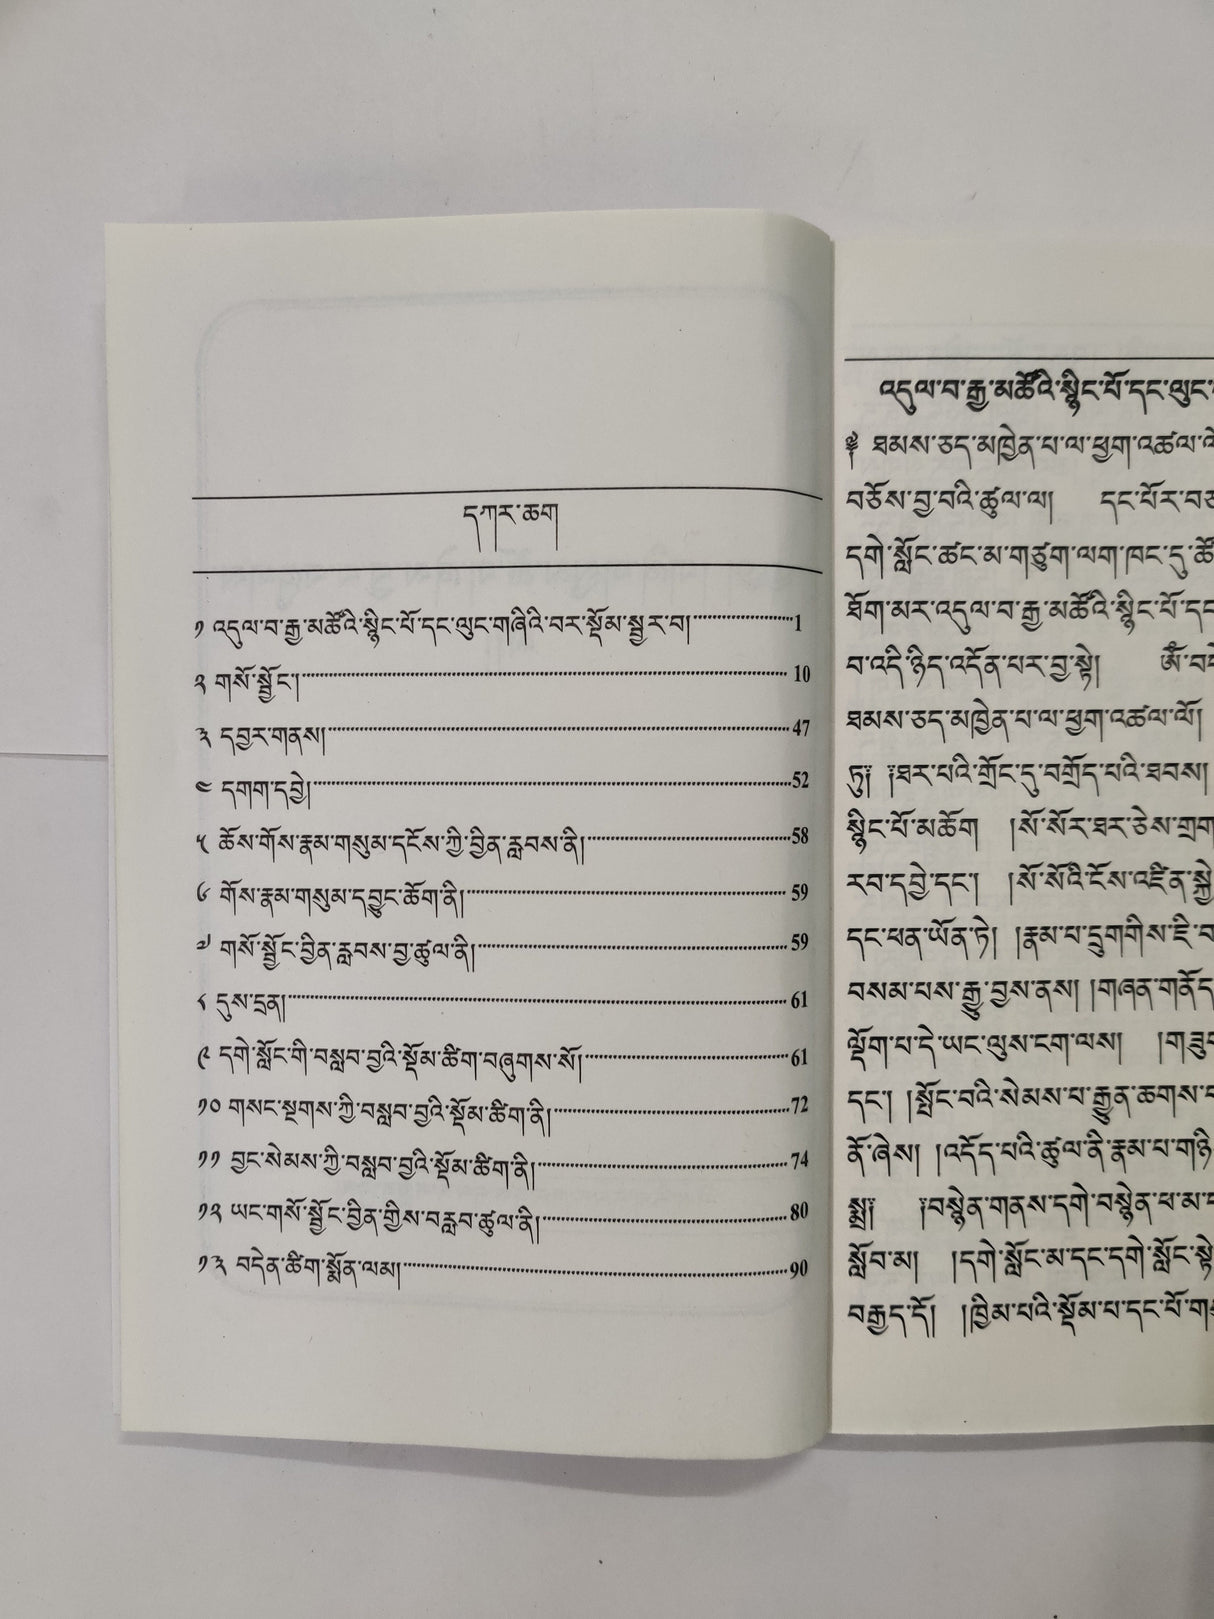 དཀར་ཆག
༡ འདུལ་བ་རྒྱ་མཚོའི་སྙིང་པོ་དང་ལུང་གཞིའི་བར་སྡོམ་སྦྱར་བ།1
༢ གསོ་སྦྱོང་།10
༣ དབྱར་གནས།47
༤ དགག་དབྱེ།52
༥ ཆོས་གོས་རྣམ་གསུམ་དངོས་ཀྱི་བྱིན་རླབས་ནི།58
༦ གོས་རྣམ་གསུམ་དབྱུང་ཆོག་ནི།59
༧ གསོ་སྦྱོང་བྱིན་རླབས་བྱ་ཚུལ་ནི།59
༨ དུས་དྲན།61
༩ དགེ་སློང་གི་བསླབ་བྱའི་སྡོམ་ཚིག་བཞུགས་སོ།61
༡༠ གསང་སྔགས་ཀྱི་བསླབ་བྱའི་སྡོམ་ཚིག་ནི།72
༡༡ བྱང་སེམས་ཀྱི་བསླབ་བྱའི་སྡོམ་ཚིག་ནི།74
༡༢ ཡང་གསོ་སྦྱོང་བྱིན་གྱིས་བརླབ་ཚུལ་ནི།80
༡༣ བདེན་ཚིག་སྨོན་ལམ།90
འདུལ་བ་རྒྱ་མཚོའི་སྙིང་པོ་དང་ལུང་
༄ ཐམས་ཅད་མཁྱེན་པ་ལ་ཕྱག་འཚལ་
བཅོས་བྱ་བའི་ཚུལ་ལ། དང་པོར་
དགེ་སློང་ཚང་མ་གཙུག་ལག་ཁང་དུ་
ཐོག་མར་འདུལ་བ་རྒྱ་མཚོའི་སྙིང་པོ་
བ་འདི་ཉིད་འདོན་པར་བྱ་སྟེ། ཨོཾ་
ཐམས་ཅད་མཁྱེན་པ་ལ་ཕྱག་འཚལ་ལོ།
ཏུ༔ ༔ཐར་པའི་གྲོང་དུ་བགྲོད་པའི་ཐབས།
སྙིང་པོ་མཆོག །སོ་སོར་ཐར་ཅེས་
རབ་དབྱེ་དང་། །སོ་སོའི་ངོས་འཛིན་
དང་ཕན་ཡོན་ཏེ། །རྣམ་པ་དྲུག་གིས་ཇི་
བསམ་པས་རྒྱུ་བྱས་ནས། །གཞན་གནོད་
ལྡོག་པ་དེ་ཡང་ལུས་ངག་ལས།
དང་། །སྤོང་བའི་སེམས་པ་རྒྱུན་ཆགས་
ནོ་ཞེས། །འདོད་པའི་ཚུལ་ནི་རྣམ་པ་
སྨྲ༔ ༔བསྙེན་གནས་དགེ་བསྙེན་ཕ་མ་
སློབ་མ། །དགེ་སློང་མ་དང་དགེ་སློང་སྟེ།
བརྒྱད་དོ། །ཁྱིམ་པའི་སྡོམ་པ་དང་པོ་